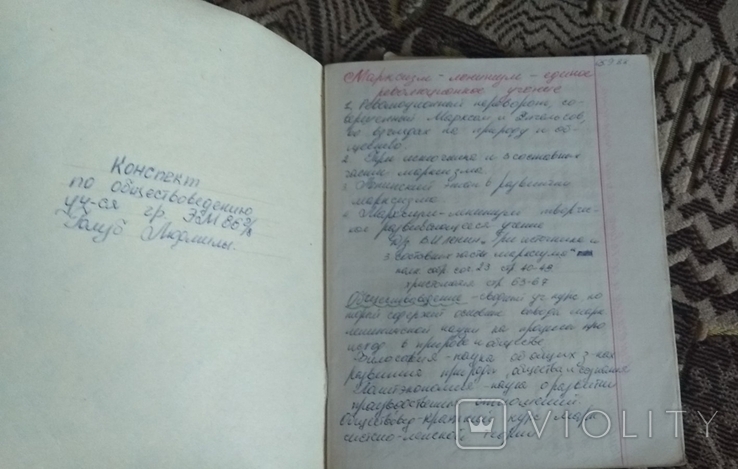 Конспект
по обществоведению
уч-ся гр. ЭВМ 86 2/8
Голуб Людмилы.
Марксизм-ленинизм – единое
революционное учение
1. Революционный переворот, со-
вершенный Марксом и Энгельсом,
во взглядах на природу и об-
щество
2. Три источника и 3 составных
части марксизма.
3. Ленинский этап в развитии
марксизма.
4. Марксизм-ленинизм творчес-
развивающееся учение
В.И. Ленин „Три источника и
3 составные части марксизма"
полн. собр. соч. 23 стр 40-49
хрестоматия стр 63-67
Обществоведение - сводный уч. курс, ко
торый содержит основные выводы марк
ленинской науки на процессы про
исход в природе и обществе
Философия - наука об общих з-нах
развития природы, общества и сознания
Политэкономия - наука о развитии
производственных отношений.
Обществовед - краткий курс Марк
систско-ленской теории
VIOLITY